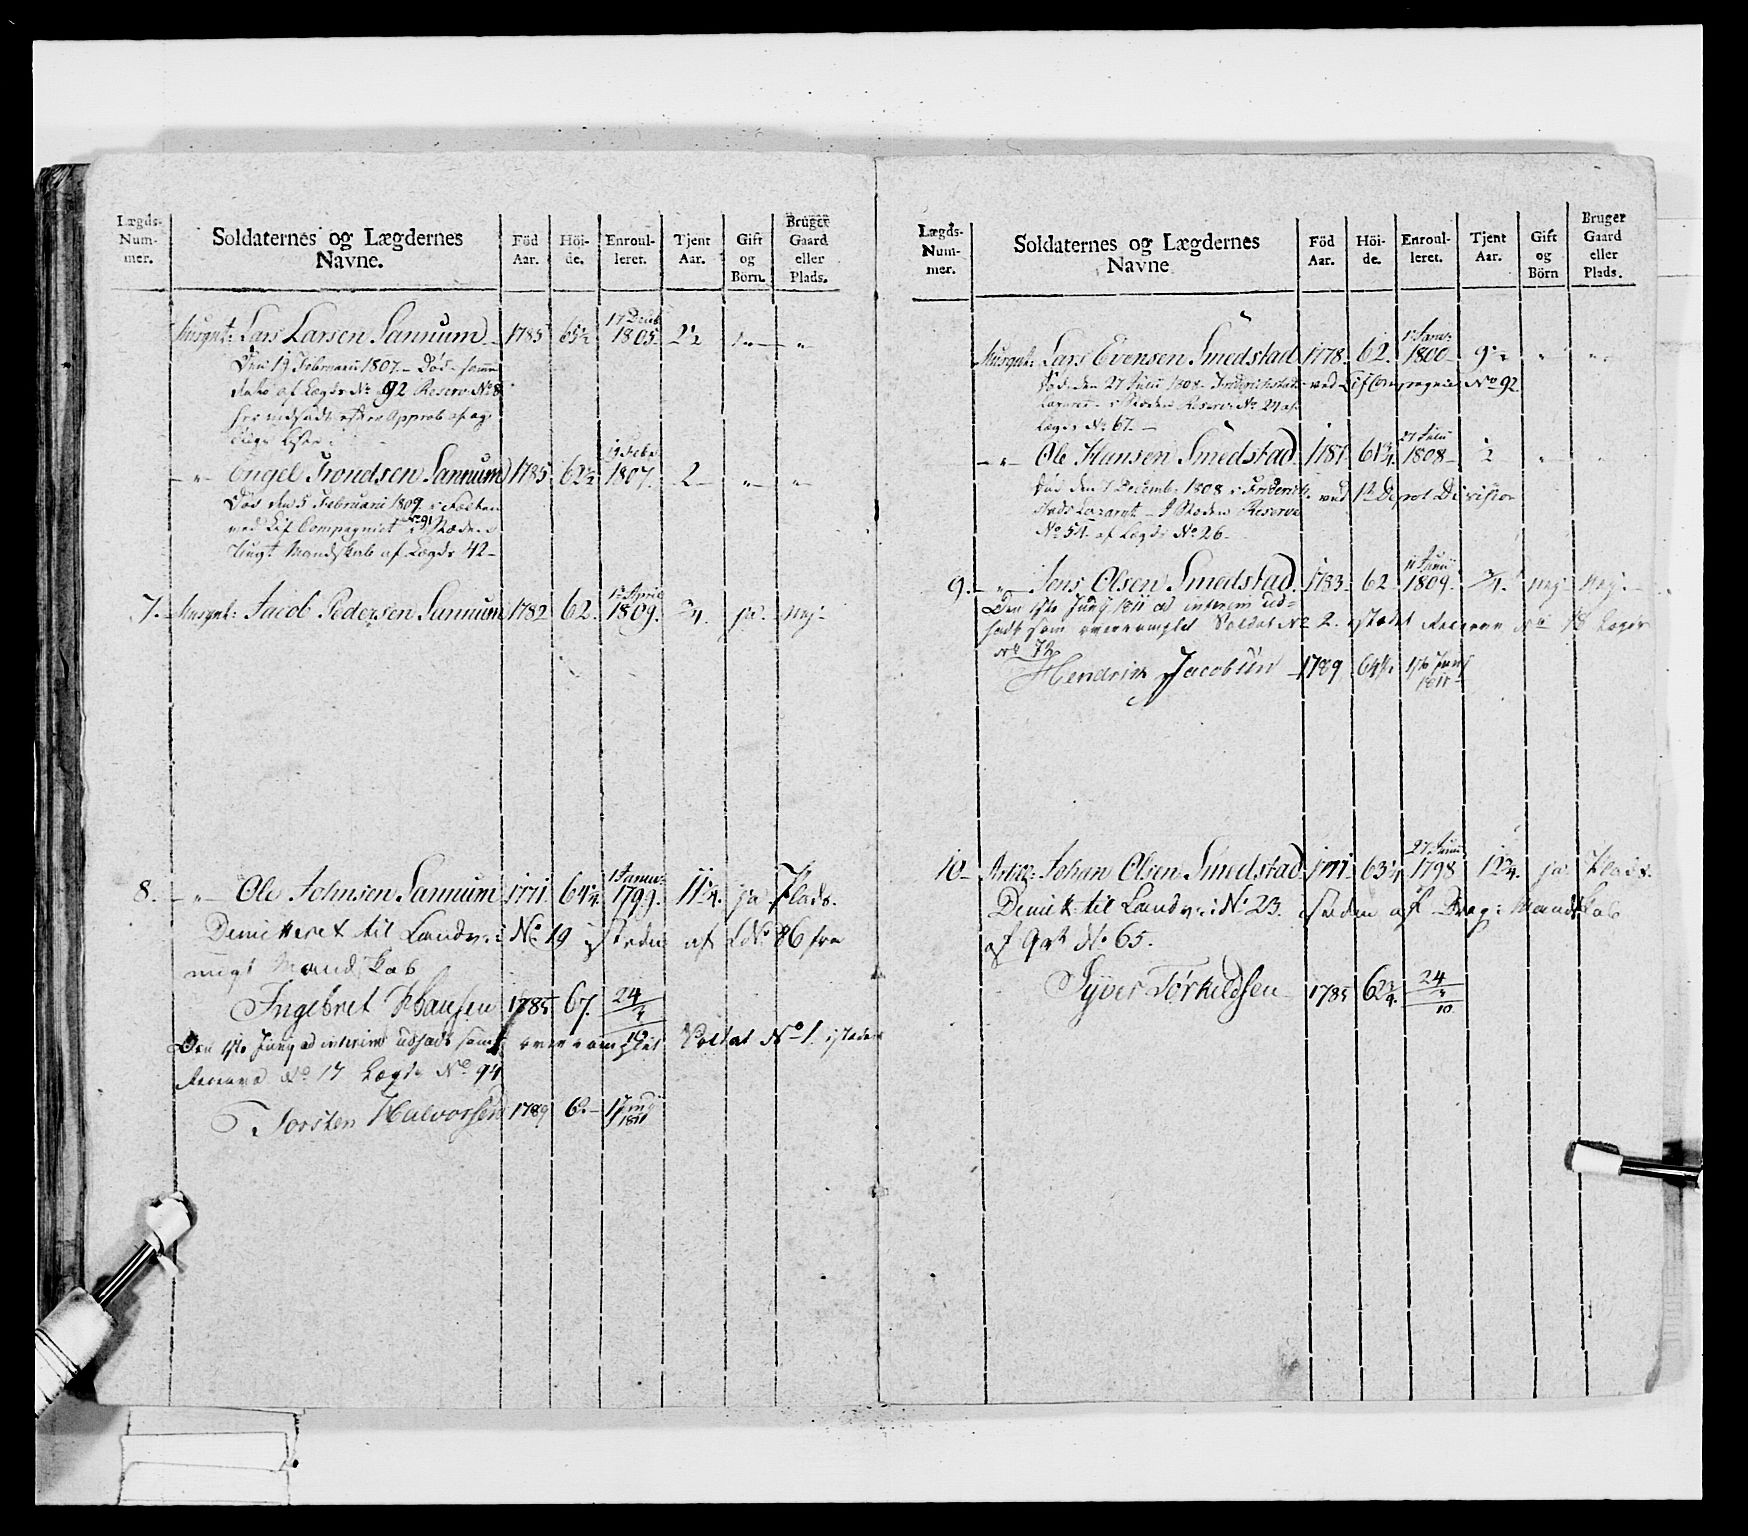 Lægds-Num-mer.
Soldaternes og Lægdernes Navne.
Föd Aar.
Höi-de.
Enroul-leret.
Tjent Aar.
Gift og Börn.
Bruger Gaard eller Plads.
Musqut: Lars Larsen Sannum 1785 65½ 17 Decb 1805. 2½
Den 19 Februarii 1807. Död
af Lægds No 92 Reserv No 8
efter Approb af
Engel Trondsen Sannum 1785. 62½ 19 Feb 1807. 2
Död den 5 Februarii 1809
ved Lif Compagniet No 91
Mandskab af Lægds 42
7. Musqut: Jacob Pedersen Sannum 1782 62. 1 April 1809. ¾. ja. Nej.
8. Ole Johnsen Sannum 1771. 64¾. 1 Januar: 1799. 11¼. ja Plads.
Demitteret til Landv: No 19 isteden af LNo 86
Mandskab
Ingebret Hansen 1785 67. 24/4/10
Den 1ste Junij ad interim udsadt som overcomplet Soldat No 1. isteden
Reserve No 17 Lægds No 94
Torsten Halvorsen 1789 6 1 Junij 1811
Lægds-Num-mer.
Soldaternes og Lægdernes Navne
Föd Aar.
Höi-de.
Enroul-leret.
Tjent Aar.
Gift og Börn
Bruger Gaard eller Plads.
Musqut: Lars Evensen Smedstad 1778. 62. 1 Janr: 1800 9½
Död den 27 Juli 1808 Frederichstad ved Lif Compagniet No 92.
Reserv: No 24 af
Lægds No 67.
Ole Hansen Smedstad 1787. 61¾. 27 Juli 1808 ½
Död den 7 Decemb: 1808 i Frederich- ved 1te Depot Division
stads Lazaret Reserve
No 54. af Lægds No 26.
9. Jens Olsen Smedstad. 1783. 62 11 Junii 1809. ¾. nej Nej.
Den 1ste Junij 1811 ad interim ud-
sadt som overcomplet Soldat No 2. istedet Reserve No 18 Lægds
No 72
Hendrich Jacobsen 1789 64½. 1ste Junij 1811
10. Johan Olsen Smedstad 1771. 63¼ 27 Junii 1798 12¾. ja Plads.
Demitt: til Landv: No 23. isteden af Mandskab
af No 65.
Syver Törkildsen 1785 62¾. 24/4/10